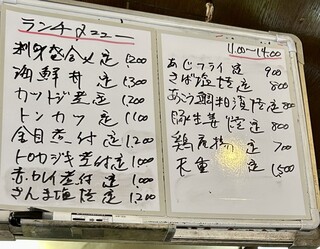 ランチメニュー
刺身盛合め定 1,200
海鮮丼定 1,300
カットジ煮定 1,200
トンカツ定 1,100
金目煮付定 1,200
トロカジキ煮付定 1,000
赤カレイ煮付定 1,000
さんま塩焼定 1,200
11:00〜14:00
あじフライ定 900
さば塩焼定 800
あこう鯛粕漬焼定 800
豚生姜焼定 800
鶏唐揚定 700
天重 1,500